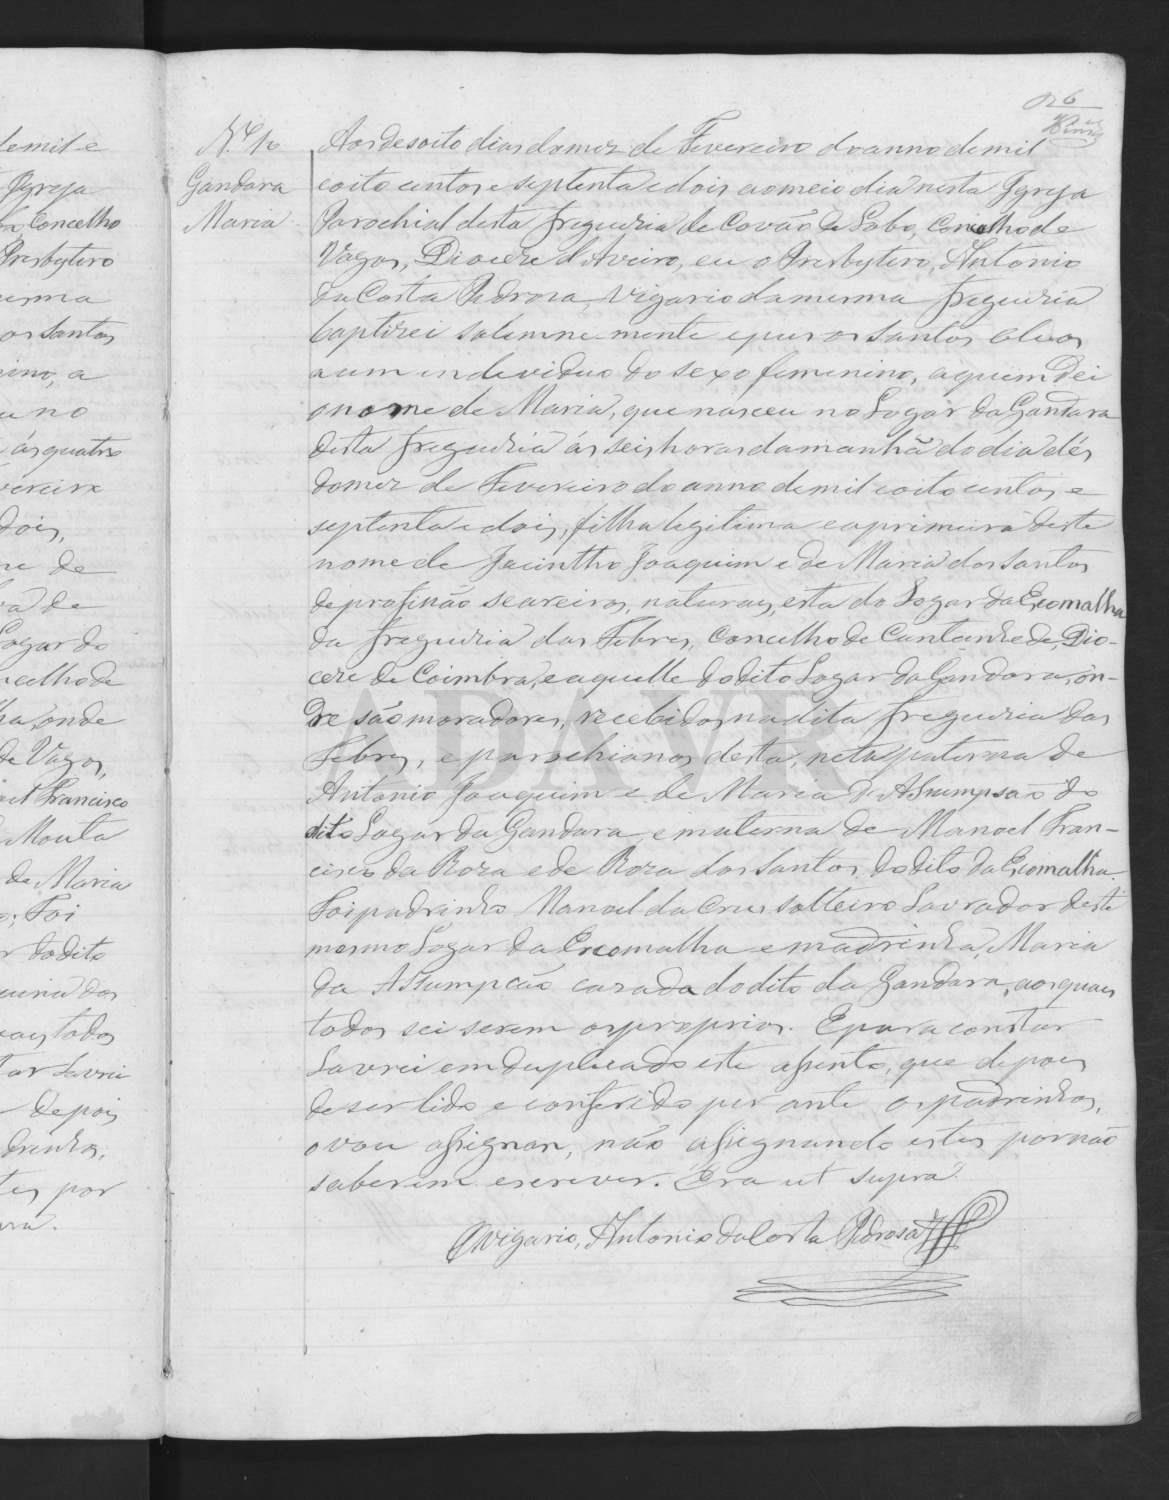 6
N.º 10
Gandara
Maria
Aos desoito dias do mez de Fevereiro do anno de mil
e oito centos e septenta e dois ao meio dia nesta Igreja
Parochial desta freguezia de Covão do Lobo, Concelho de
Vagos, Diocese d'Aveiro, eu o Presbytero, Antonio
da Costa Pedrosa, Vigario da mesma freguezia
baptizei solemne-mente e puz os Santos Oleos
a um endeviduo do sexo femenino, a quem dei
o nome de Maria, que nasceu no Logar da Gandara
desta freguezia ás seis horas da manhã do dia dés
do mez de Fevereiro do anno de mil e oito centos e
septenta e dois, filha legitima e a primeira deste
nome de Jacintho Joaquim e de Maria dos Santos
de profissão seareiros, naturaes, esta do Logar da Escomalha
da freguezia das Febres, Concelho de Cantanhede, Dio-
cese de Coimbra, e aquelle do dito Logar da Gandara, on-
de são moradores, recebidos na dita freguezia das
Febres, e parochianos desta, neta paterna de
Antonio Joaquim e de Maria d'Assumpsão do
dito Logar da Gandara, e materna de Manoel Fran-
cisco da Roza e de Roza dos Santos, do dito da Escomalha.
Foi padrinho Manoel da Cruz solteiro Lavrador deste
mesmo Logar da Escomalha e madrinha, Maria
da Assumpcão casada do dito da Gandara, aos quaes
todos sei serem os proprios. E para constar
Lavrei em duplicado este assento, que depois
de ser lido e conferido per ante os padrinhos,
o vou assignar, não assignando estes por não
saberem escrever. Era ut supra.
O Vigario, Antonio da Costa Pedrosa
ADAVR
de mil e
Igreja
Concelho
Presbytero
mesma
os Santos
ino, a
no
ás quatro
Fevereiro
dois,
de
de
Logar do
Concelho de
onde
de Vagos,
Francisco
Mouta
de Maria
Foi
do dito
das
todos
Lavrei
depois
drinhos,
por